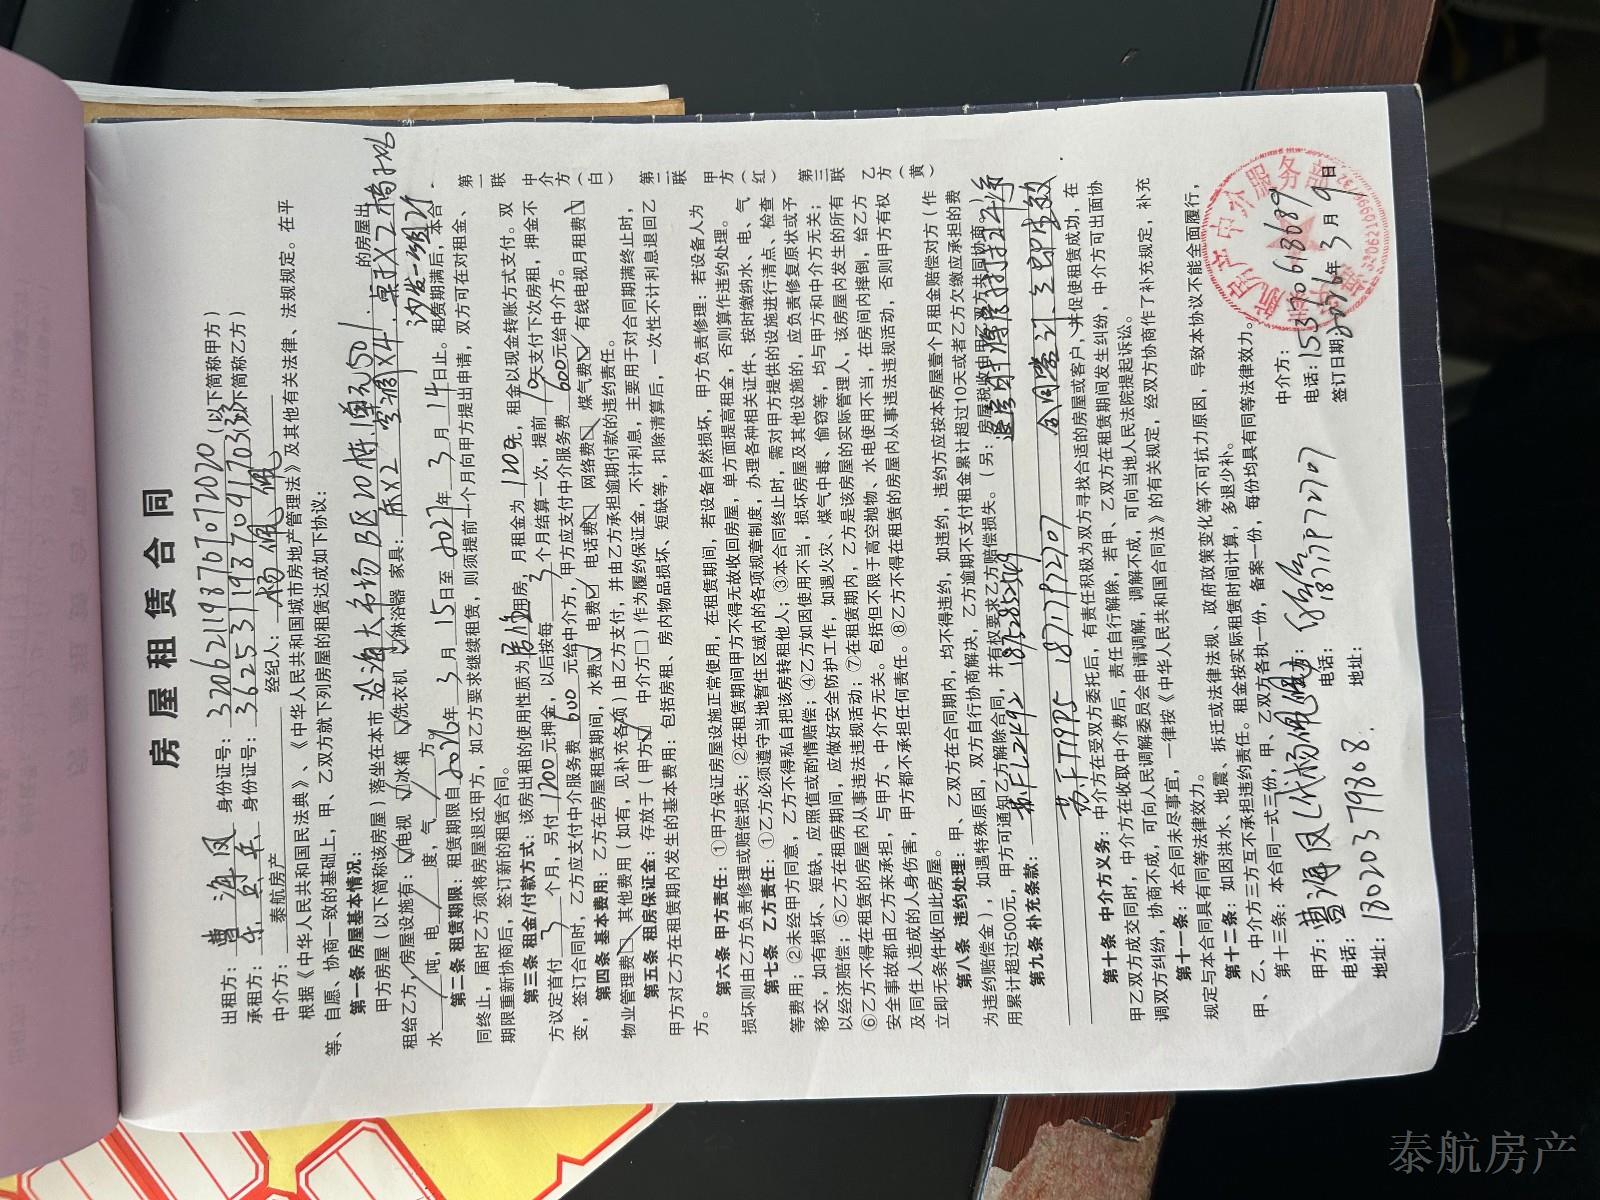 房屋租赁合同
出租方：曹海凤 身份证号：320621198707072020（以下简称甲方）
承租方： 身份证号：362531198709170313（以下简称乙方）
中介方：泰航房产 经纪人：杨佩佩
根据《中华人民共和国民法典》、《中华人民共和国城市房地产管理法》及其他有关法律、法规规定。在平
等、自愿、协商一致的基础上，甲、乙双方就下列房屋的租赁达成如下协议：
第一条 房屋基本情况：
甲方房屋（以下简称该房屋）落坐在本市 大市场B区10幢 的房屋出
租给乙方，房屋设施有：☑电视 ☑冰箱 ☑洗衣机 ☑淋浴器 家具：床X2 空调X4．桌子X2 沙发一组
水／吨，电／度，气／方。
第二条 租赁期限：租赁期限自2026年3月15日至2027年3月14日止。租赁期满后，本合
同终止，届时乙方须将房屋退还甲方，如乙方要求继续租赁，则须提前一个月向甲方提出申请，双方可在对租金、
期限重新协商后，签订新的租赁合同。
第三条 租金/付款方式：该房出租的使用性质为居住用房，月租金为1200元，租金以现金转账方式支付。双
方议定首付3个月，另付1200元押金，以后按每3个月结算一次，提前10天支付下次房租，押金不
变，签订合同时，乙方应支付中介服务费600元给中介方，甲方应支付中介服务费600元给中介方。
第四条 基本费用：乙方在房屋租赁期间，水费☑ 电费☑ 电话费☑ 网络费☑ 煤气费☑ 有线电视月租费☑
物业管理费☑ 其他费用（如有，见补充各项）由乙方支付，并由乙方承担逾期付款的违约责任。
第五条 租房保证金：存放于（甲方☑ 中介方□）作为履约保证金，不计利息，主要用于对合同期满终止时，
甲方对乙方在租赁期内发生的基本费用：包括房租、房内物品损坏、短缺等，扣除清算后，一次性不计利息退回乙
方。
第六条 甲方责任：①甲方保证房屋设施正常使用，在租赁期间，若设备自然损坏，甲方负责修理：若设备人为
损坏则由乙方负责修理或赔偿损失；②在租赁期间甲方不得无故收回房屋，单方面提高租金，否则算作违约处理。
第七条 乙方责任：①乙方必须遵守当地暂住区域内的各项规章制度，办理各种相关证件、按时缴纳水、电、气
等费用；②未经甲方同意，乙方不得私自把该房转租他人；③本合同终止时，需对甲方提供的设施进行清点、检查
移交，如有损坏、短缺，应照值或酌情赔偿；④乙方如因使用不当，损坏房屋及其他设施的，应负责修复原状或予
以经济赔偿；⑤乙方在租房期间，应做好安全防护工作，如遇火灾、煤气中毒、偷窃等，均与甲方和中介方无关；
⑥乙方不得在租赁的房屋内从事违法违规活动；⑦在租赁期内，乙方是该房屋的实际管理人，该房屋内发生的所有
安全事故都由乙方来承担，与甲方、中介方无关。包括但不限于高空抛物、水电使用不当，在房间内摔倒，给乙方
及同住人造成的人身伤害，甲方都不承担任何责任。⑧乙方不得在租赁的房屋内从事违法违规活动，否则甲方有权
立即无条件收回此房屋。
第八条 违约处理：甲、乙双方在合同期内，均不得违约，如违约，违约方应按本房屋壹个月租金赔偿对方（作
为违约赔偿金），如遇特殊原因，双方自行协商解决，乙方逾期不支付租金累计超过10天或者乙方欠缴应承担的费
用累计超过500元，甲方可通知乙方解除合同，并有权要求乙方赔偿损失。（另：房屋税收由甲乙双方共同协商。）
第九条 补充条款：苏FL2492 退房时将房打扫干净
苏FT19P5 18717972707 合同签订立即生效．
第十条 中介方义务：中介方在受双方委托后，有责任积极为双方寻找合适的房屋或客户，并促使租赁成功，在
甲乙双方成交同时，中介方在收取中介费后，责任自行解除，若甲、乙双方在租赁期间发生纠纷，中介方可出面协
调双方纠纷，协商不成，可向人民调解委员会申请调解，调解不成，可向当地人民法院提起诉讼。
第十一条：本合同未尽事宜，一律按《中华人民共和国合同法》的有关规定，经双方协商作了补充规定，补充
规定与本合同具有同等法律效力。
第十二条：如因洪水、地震、拆迁或法律法规、政府政策变化等不可抗力原因，导致本协议不能全面履行，
甲、乙、中介方三方互不承担违约责任。租金按实际租赁时间计算，多退少补。
第十三条：本合同一式三份，甲、乙双方各执一份，备案一份，每份均具有同等法律效力。
甲方：曹海凤（代杨佩佩） 乙方： 中介方：
电话：18020379808． 电话：18717972707 电话：15390618689
地址： 地址： 签订日期：2026年3月9日
第一联 中介方（白） 第二联 甲方（红） 第三联 乙方（黄）
房产中介服务部
泰航房产